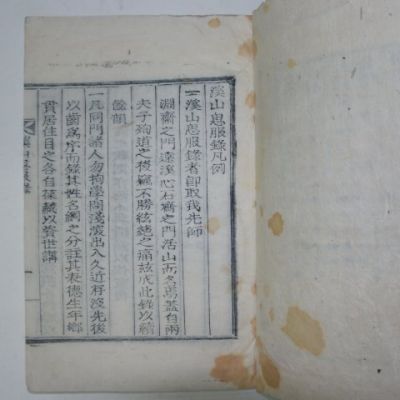 溪山息服錄凡例
一溪山息服錄者卽取我先師
淵齋之門遠溪心石齋之門活山而名焉蓋自兩
夫子殉道之後竊不勝絃絶之痛玆成此錄以續
餘韻
一凡同門諸人勿拘學問淺深出入久近存沒先後
以齒爲序而錄其姓名綱之分註其表德生年鄉
貫居住目之各自葆藏以資世講